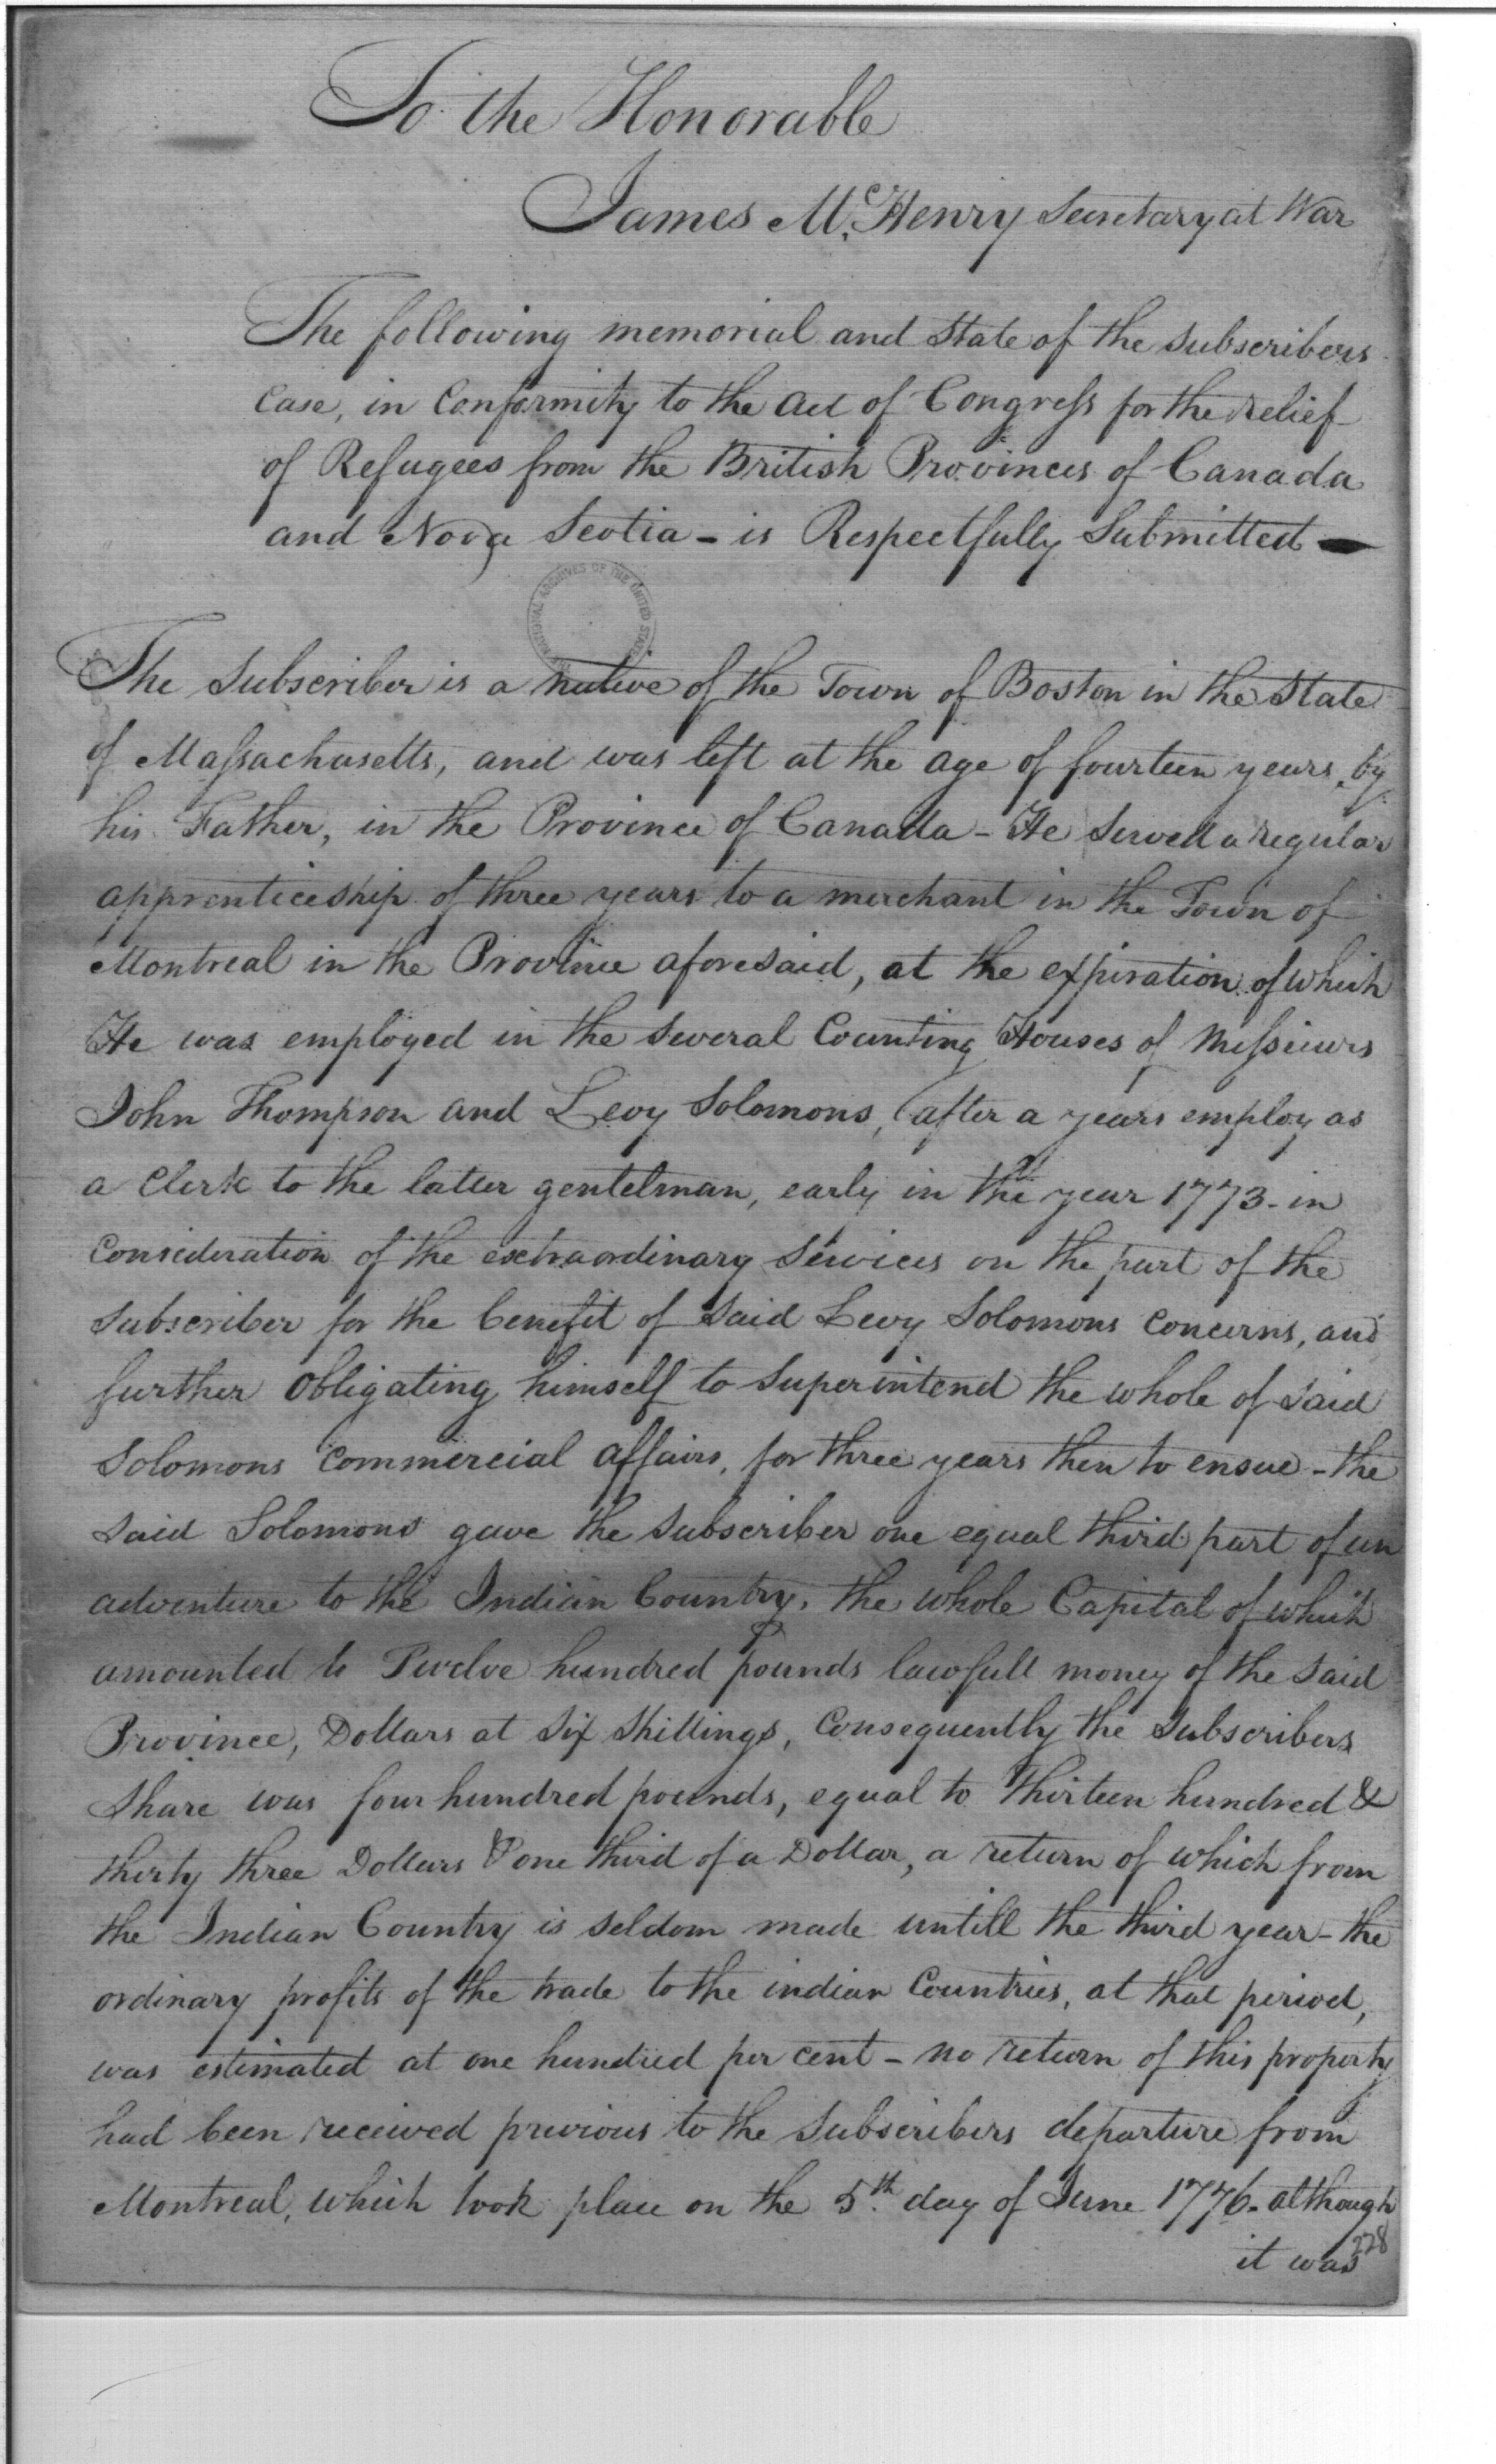 To the Honorable
James McHenry Secretary at War
The following memorial and State of the subscribers
Case, in Conformity to the Act of Congress for the relief
of Refugees from the British Provinces of Canada
and Nova Scotia - is Respectfully Submitted -
THE NATIONAL ARCHIVES OF THE UNITED STATES
The Subscriber is a native of the Town of Boston in the State
of Massachusetts, and was left at the age of fourteen years, by
his Father, in the Province of Canada - He Served a regular
apprenticeship of three years to a merchant in the Town of
Montreal in the Province aforesaid, at the expiration of which
He was employed in the several Counting Houses of Messieurs
John Thompson and Levy Solomons, (after a years employ as
a Clerk to the latter gentelman, early in the year 1773 - in
Consideration of the extraordinary Services on the part of the
Subscriber for the benefit of said Levy Solomons Concerns, and
further Obligating himself to Superintend the whole of said
Solomons Commercial affairs, for three years then to ensue - the
said Solomons gave the Subscriber one equal third part of an
adventure to the Indian Country, the whole Capital of which
amounted to Twelve hundred pounds lawfull money of the said
Province, Dollars at Six Shillings, Consequently the Subscribers
Share was four hundred pounds, equal to Thirteen hundred &
thirty three Dollars & one third of a Dollar, a return of which from
the Indian Country is seldom made untill the third year - the
ordinary profits of the trade to the indian Countries, at that period,
was estimated at one hundred per cent - no return of this property
had been received previous to the Subscribers departure from
Montreal, which took place on the 5th day of June 1776 - although
it was
228